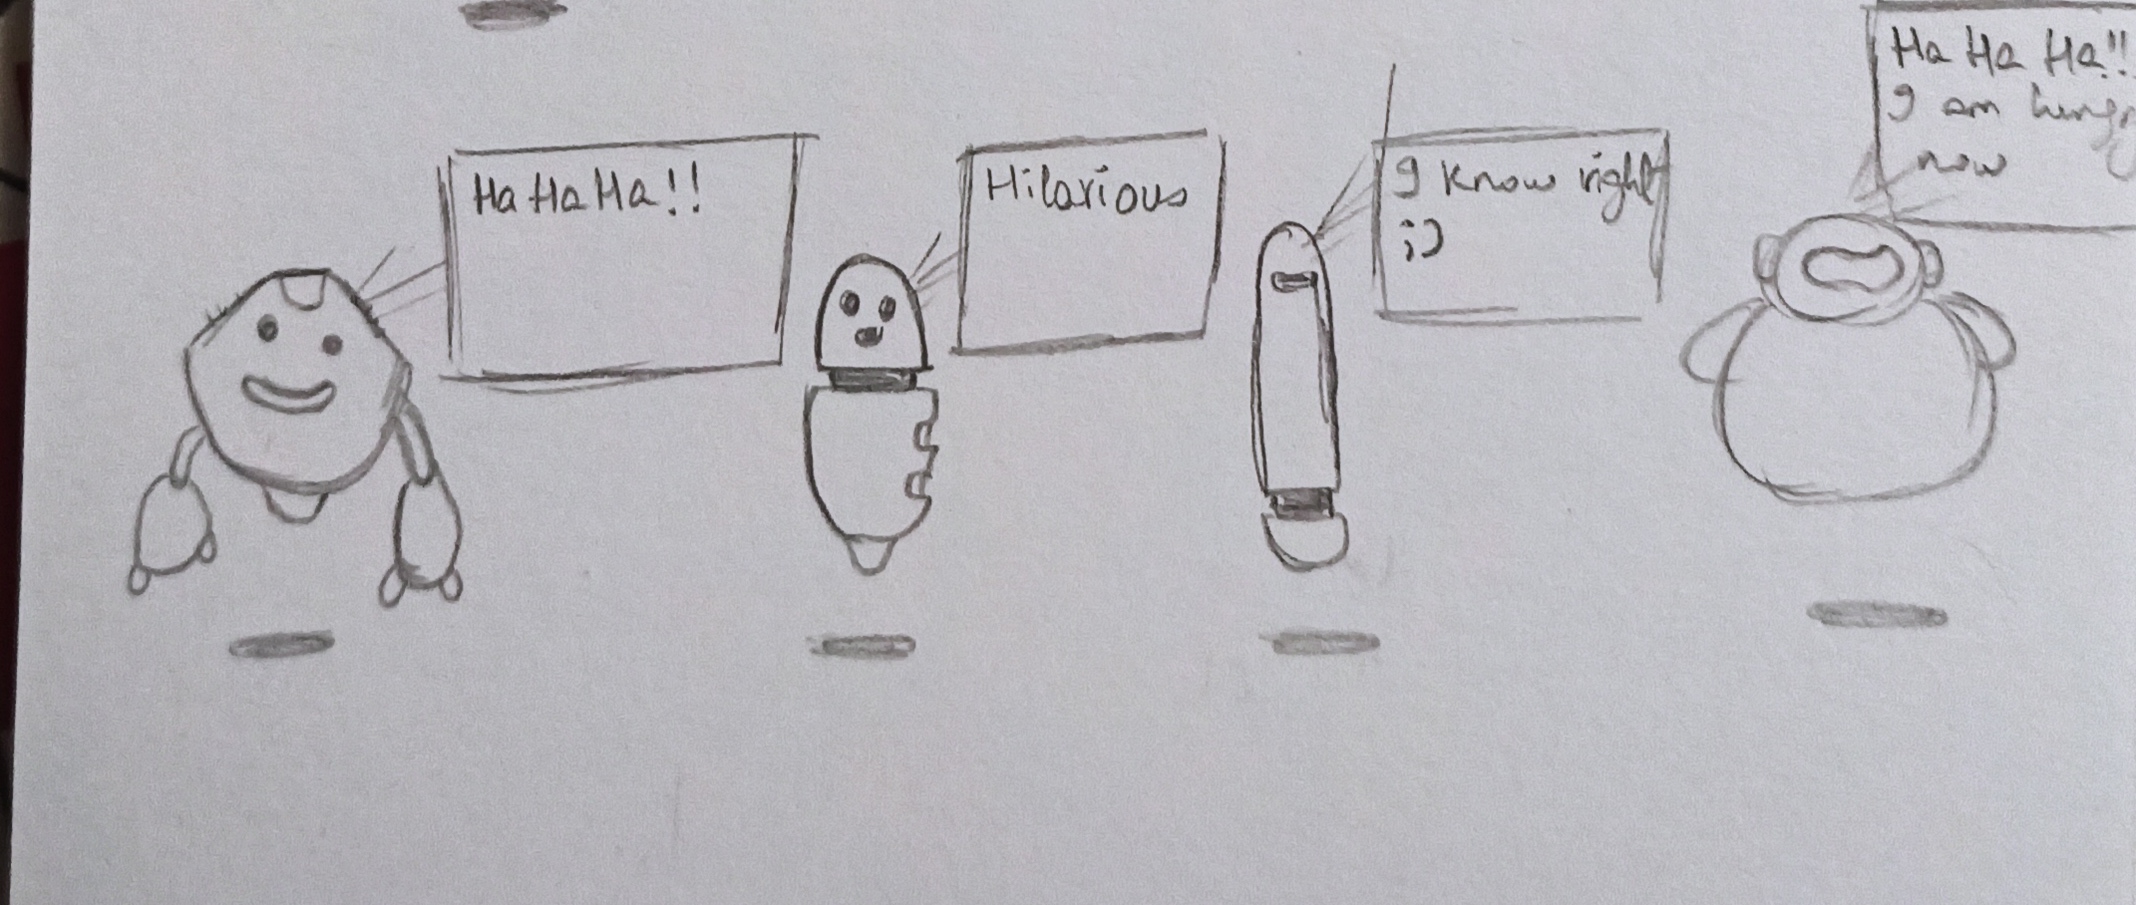 Ha Ha Ha!!
Hilarious
I know right
;)
Ha Ha Ha!!
I am
now